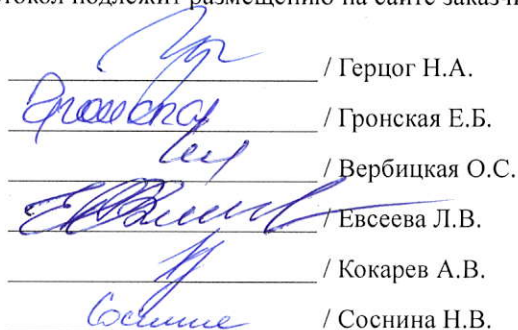 токол подлежит размещению на сайте заказчи
/ Герцог Н.А.
/ Гронская Е.Б.
/ Вербицкая О.С.
/ Евсеева Л.В.
/ Кокарев А.В.
/ Соснина Н.В.